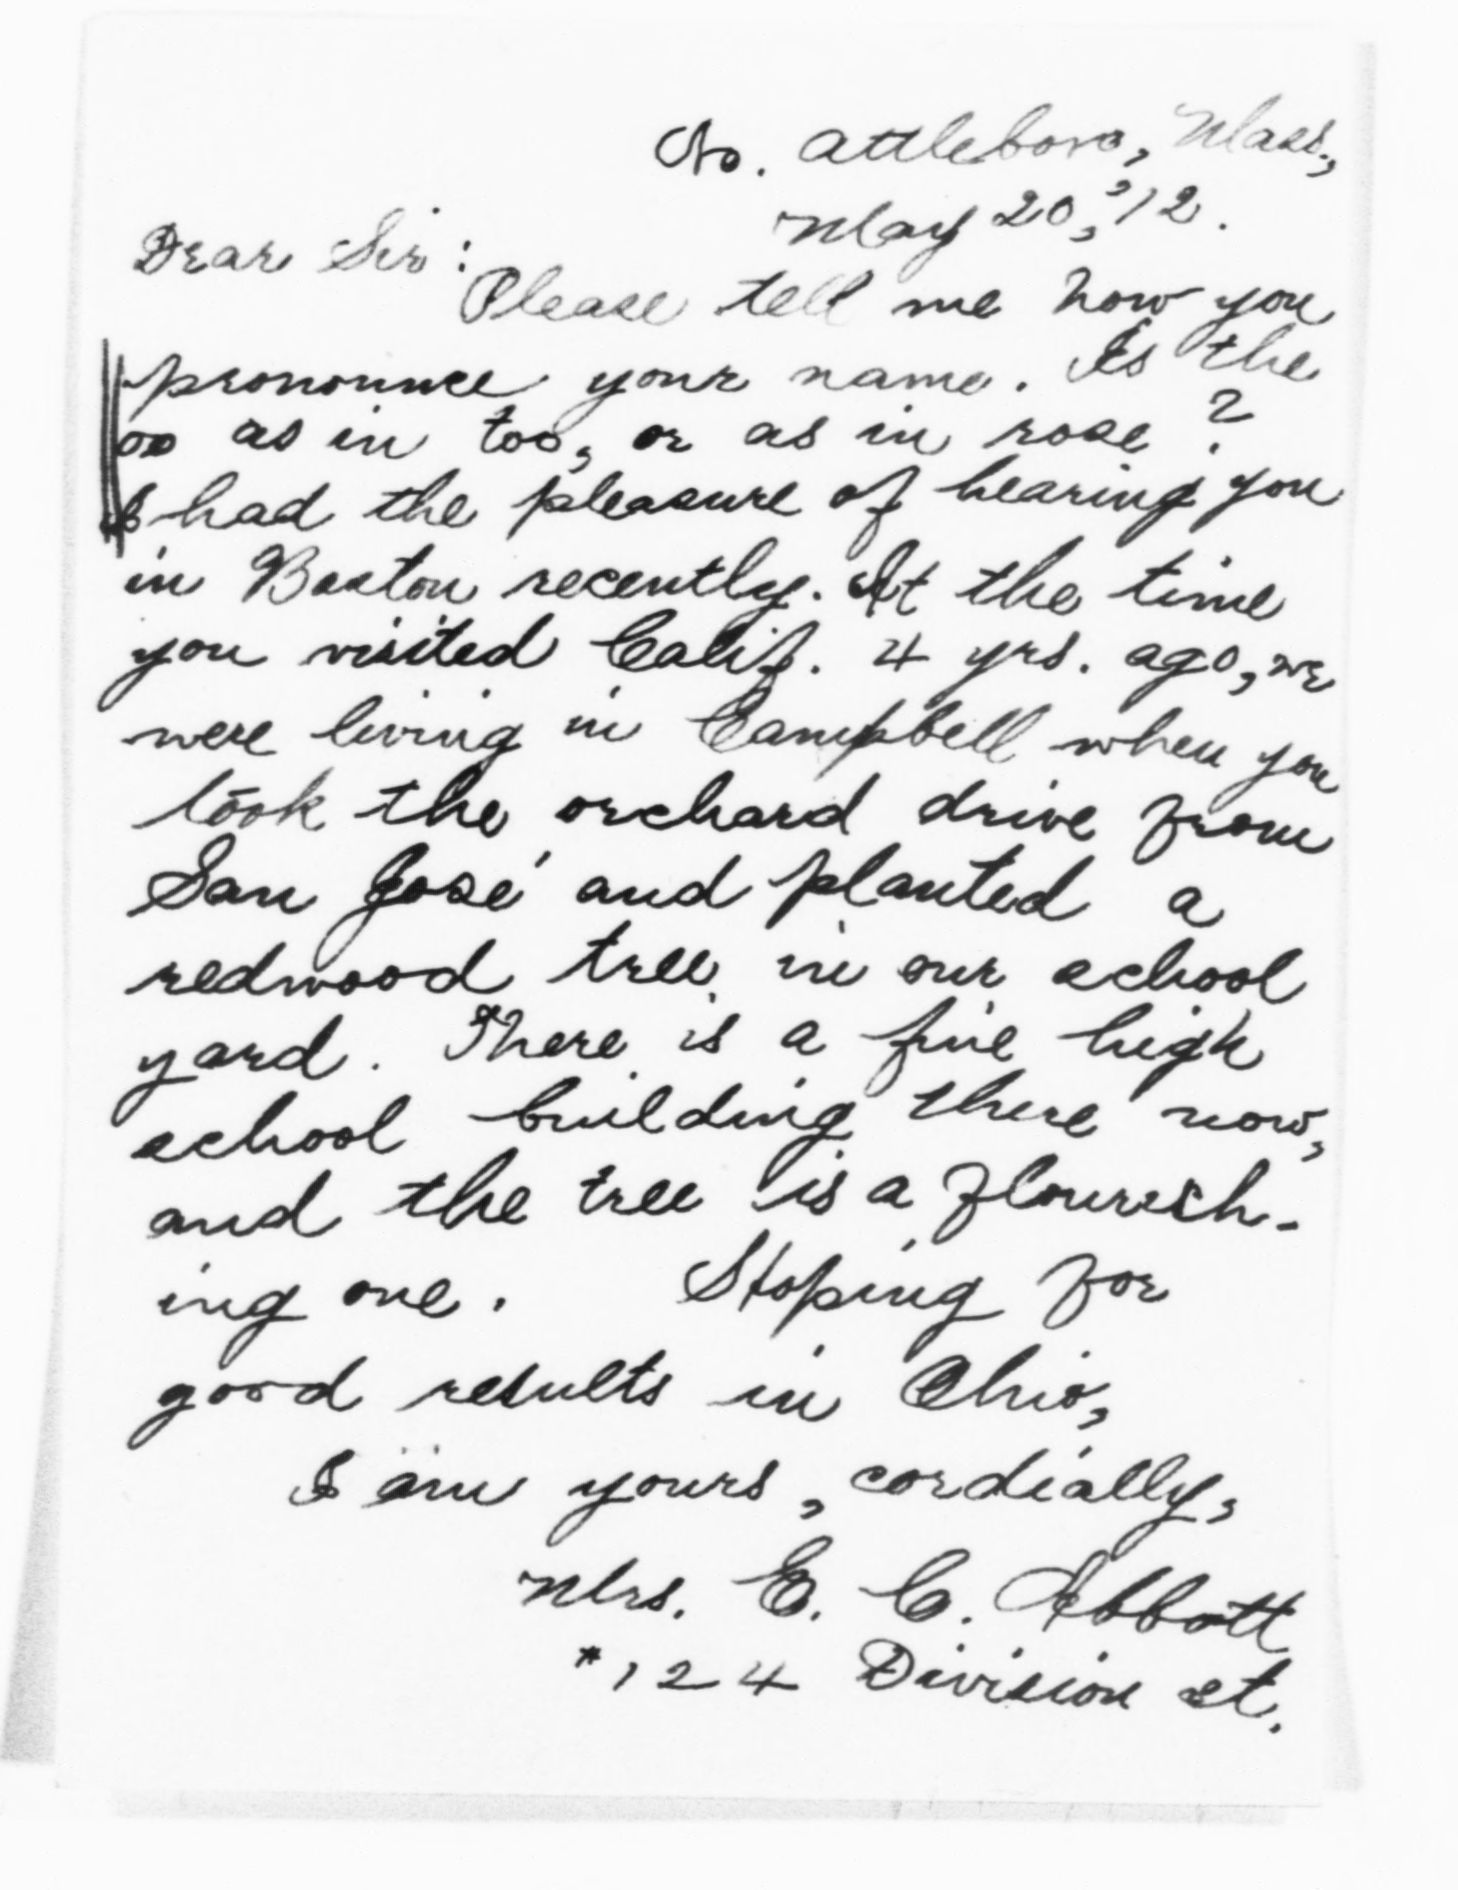 No. Attleboro, Mass.,
May 20, '12.
Dear Sir:
Please tell me how you
pronounce your name. Is the
oo as in too, or as in rose?
I had the pleasure of hearing you
in Boston recently. At the time
you visited Calif. 4 yrs. ago, we
were living in Campbell when you
took the orchard drive from
San José and planted a
redwood tree in our school
yard. There is a fine high
school building there now,
and the tree is a flourish-
ing one. Hoping for
good results in Ohio,
I am yours, cordially,
Mrs. E. C. Abbott
#124 Division st.